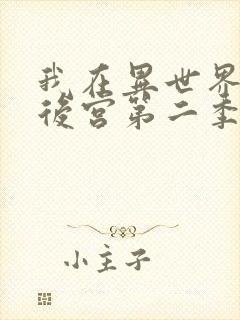 我在異世界
後宮第二季
小主子